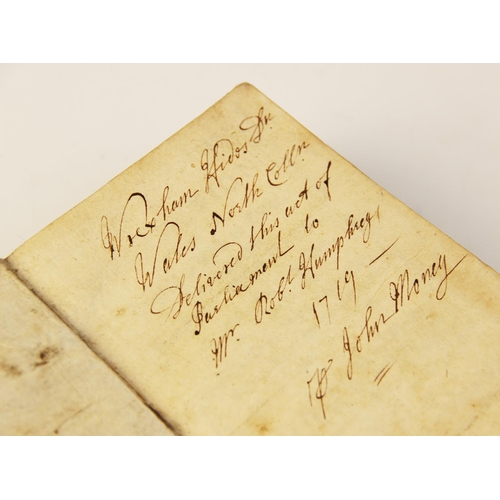 Wrexham Hides Dr.
Wales North Collr.
Delivered this act of
Parliament to
Mr. Robt. Humphreys
1719 —
John Money